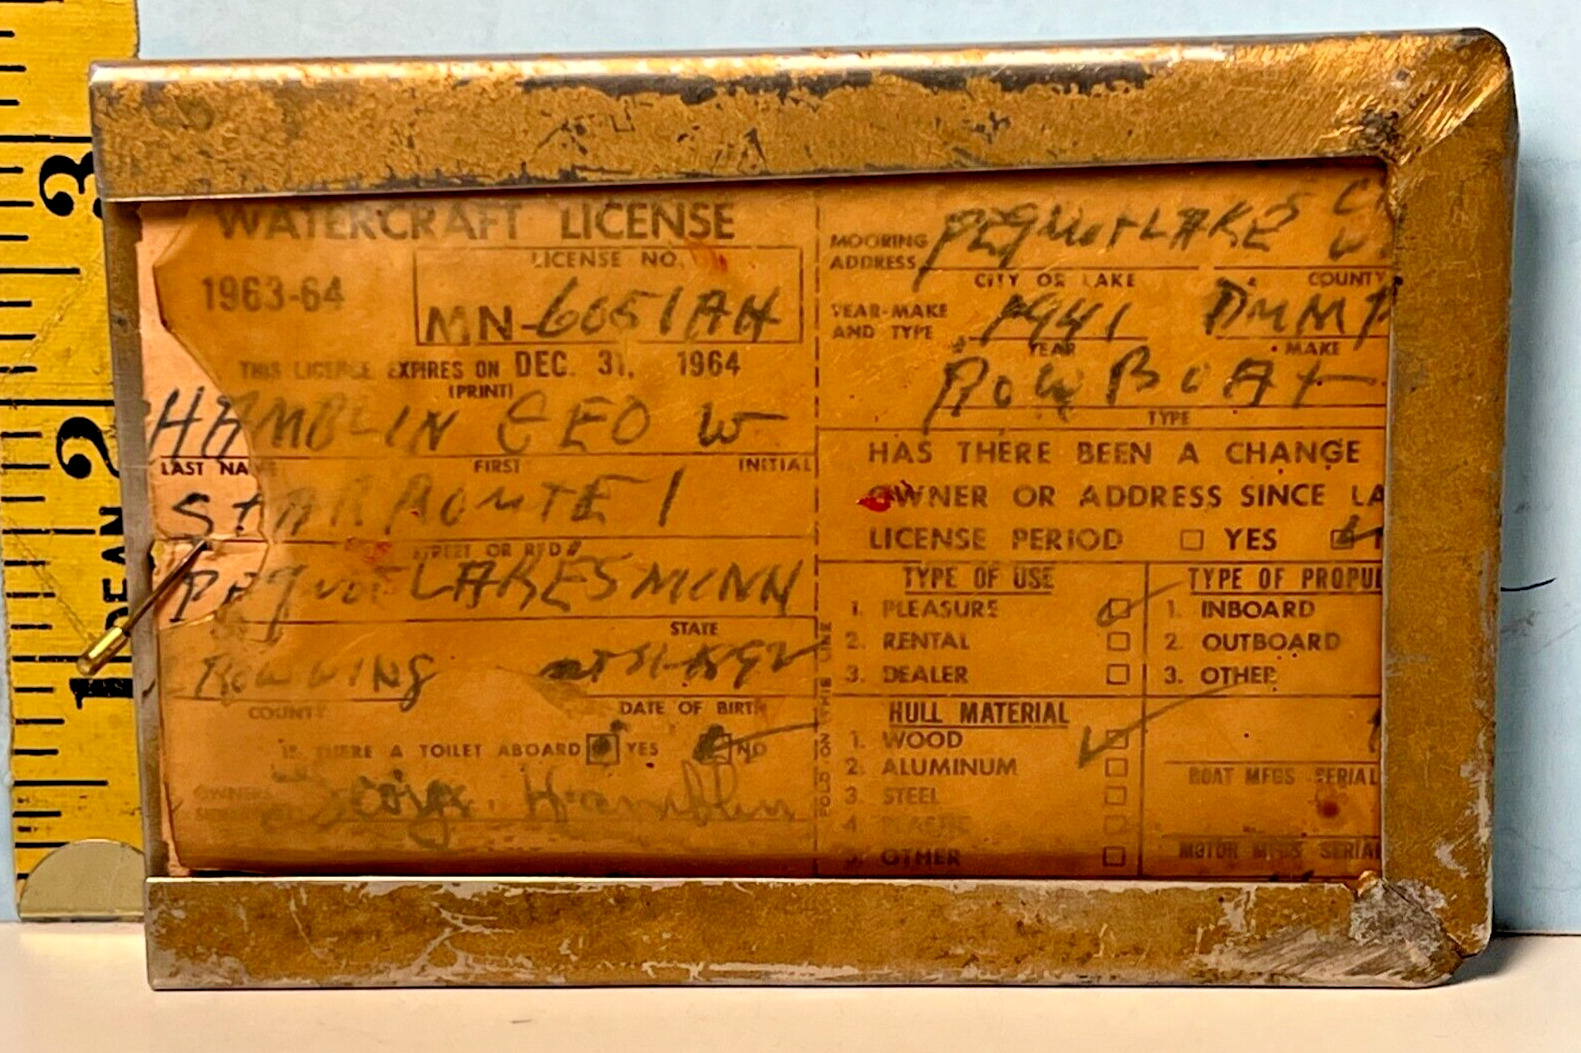 3
2
1
DEAN
WATERCRAFT LICENSE
1963-64
LICENSE NO.
MN-6051AH
THIS LICENSE EXPIRES ON DEC. 31, 1964
(PRINT)
HAMBLIN GEO W
LAST NAME FIRST INITIAL
STAR ROUTE 1
STREET OR RFD#
PEQUOT LAKES MINN
STATE
COUNTY DATE OF BIRTH
IS THERE A TOILET ABOARD YES NO
OWNERS
George Hamblin
FOLD ON THIS LINE
MOORING ADDRESS PEQUOT LAKES
CITY OR LAKE COUNTY
YEAR-MAKE AND TYPE 1941
YEAR MAKE
ROW BOAT
TYPE
HAS THERE BEEN A CHANGE
OWNER OR ADDRESS SINCE LA
LICENSE PERIOD YES
TYPE OF USE
1. PLEASURE
2. RENTAL
3. DEALER
TYPE OF PROPUL
1. INBOARD
2. OUTBOARD
3. OTHER
HULL MATERIAL
1. WOOD
2. ALUMINUM
3. STEEL
4. PLASTIC
5. OTHER
BOAT MFGS SERIAL
MOTOR MFGS SERIAL